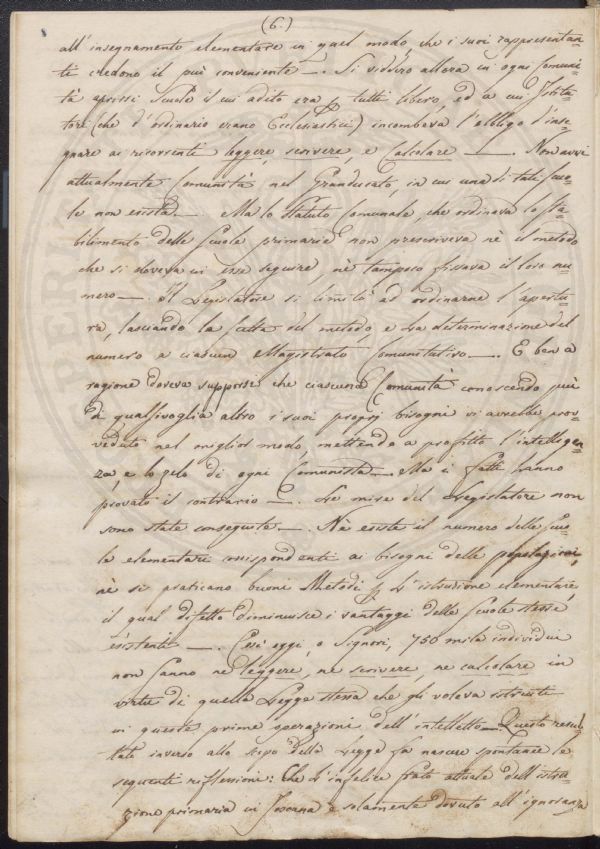 (6.)
all' insegnamento elementare in quel modo, che i suoi rappresentan-
ti credono il più conveniente —. Si viddero allora in ogni Comuni-
tà aprirsi Scuole il cui adito era p. tutti libero, ed a cui Istitu-
tori (che d'ordinario erano Ecclesiastici) incombeva l'obbligo d'inse-
gnare ai ricorrenti leggere, scrivere, e calcolare —. Non avvi
attualmente Comunità nel Granducato, in cui una di tali Scuo-
le non esista —. Ma lo Statuto Comunale, che ordinava lo sta-
bilimento delle Scuole primarie non prescriveva nè il metodo
che si doveva in esse seguire, nè tampoco fissava il loro nu-
mero —. Il Legislatore si limitò ad ordinarne l'apertu-
ra, lasciando la scelta del metodo, e la determinazione del
numero a ciascun Magistrato Comunitativo —. E ben a
ragione doveva supporsi che ciascuna Comunità conoscendo più
di qualsivoglia altro i suoi propri bisogni vi avrebbe prov-
veduto nel miglior modo, mettendo a profitto l'intelligen-
za, e lo zelo di ogni Comunista —. Ma i fatti hanno
provato il contrario —. Le mire del Legislatore non
sono state conseguite —. Nè esiste il numero delle Scuo-
le elementari corrispondenti ai bisogni delle popolazioni,
nè si praticano buoni Metodi p. l'istruzione elementare,
il qual difetto diminuisce i vantaggi delle Scuole stesse
esistenti —. Così oggi, o Signori, 750 mila individui
non sanno nè leggere, nè scrivere, nè calcolare in
virtù di quella Legge stessa che gli voleva istruiti
in queste prime operazioni dell' intelletto —. Questo resul-
tato inverso allo scopo della Legge fa nascere spontanee le
seguenti riflessioni: Che l'infelice stato attuale dell' istru-
zione primaria in Toscana è solamente dovuto all' ignoranza